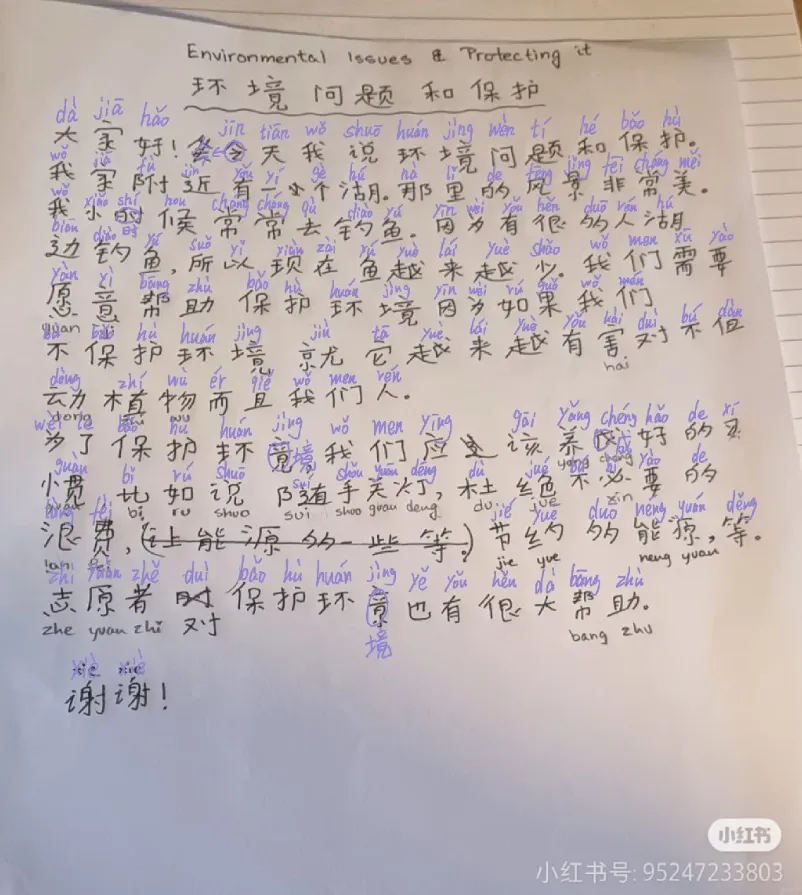 Environmental Issues & Protecting it
环境问题和保护
dà jiā hǎo jīn tiān wǒ shuō huán jìng wèn tí hé bǎo hù
大家好！今天我说环境问题和保护。
wǒ jiā fù jìn yǒu yí gè hú nà lǐ de fēng jǐng fēi cháng měi
我家附近有一个湖。那里的风景非常美。
wǒ xiǎo shí hou cháng cháng qù diào yú yīn wèi yǒu hěn duō rén hú
我小时候常常去钓鱼。因为有很多的人湖
时
biān diào yú suǒ yǐ xiàn zài yú yuè lái yuè shǎo wǒ men xū yào
边钓鱼，所以现在鱼越来越少。我们需要
yuàn yì bāng zhù bǎo hù huán jìng yīn wèi rú guǒ wǒ mén
愿意帮助保护环境因为如果我们
yuan
bù bǎo hù huán jìng jiù tā yuè lái yuè yǒu hài duì bú dàn
不保护环境就它越来越有害对不但
hai
dòng zhí wù ér qiě wǒ men rén
动植物而且我们人。
dong zhi wu
wèi le bǎo hù huán jìng wǒ men yīng gāi yǎng chéng hǎo de xí
为了保护环境我们应该养成好的习
境 成
yang cheng
guàn bǐ rú shuō suí shǒu guān dēng dù jué bú bì yào de
惯比如说随手关灯，杜绝不必要的
bi ru shuo sui shou guan deng du jue
làng fèi jié yuē duō néng yuán děng
浪费，(让能源的一些等。)节约的能源，等。
jie yue neng yuan
zhì yuàn zhě duì bǎo hù huán jìng yě yǒu hěn dà bāng zhù
志愿者对保护环境也有很大帮助。
zhe yuan zhi 对 境 bang zhu
xiè xiè
xie xie
谢谢！
小红书
小红书号: 95247233803